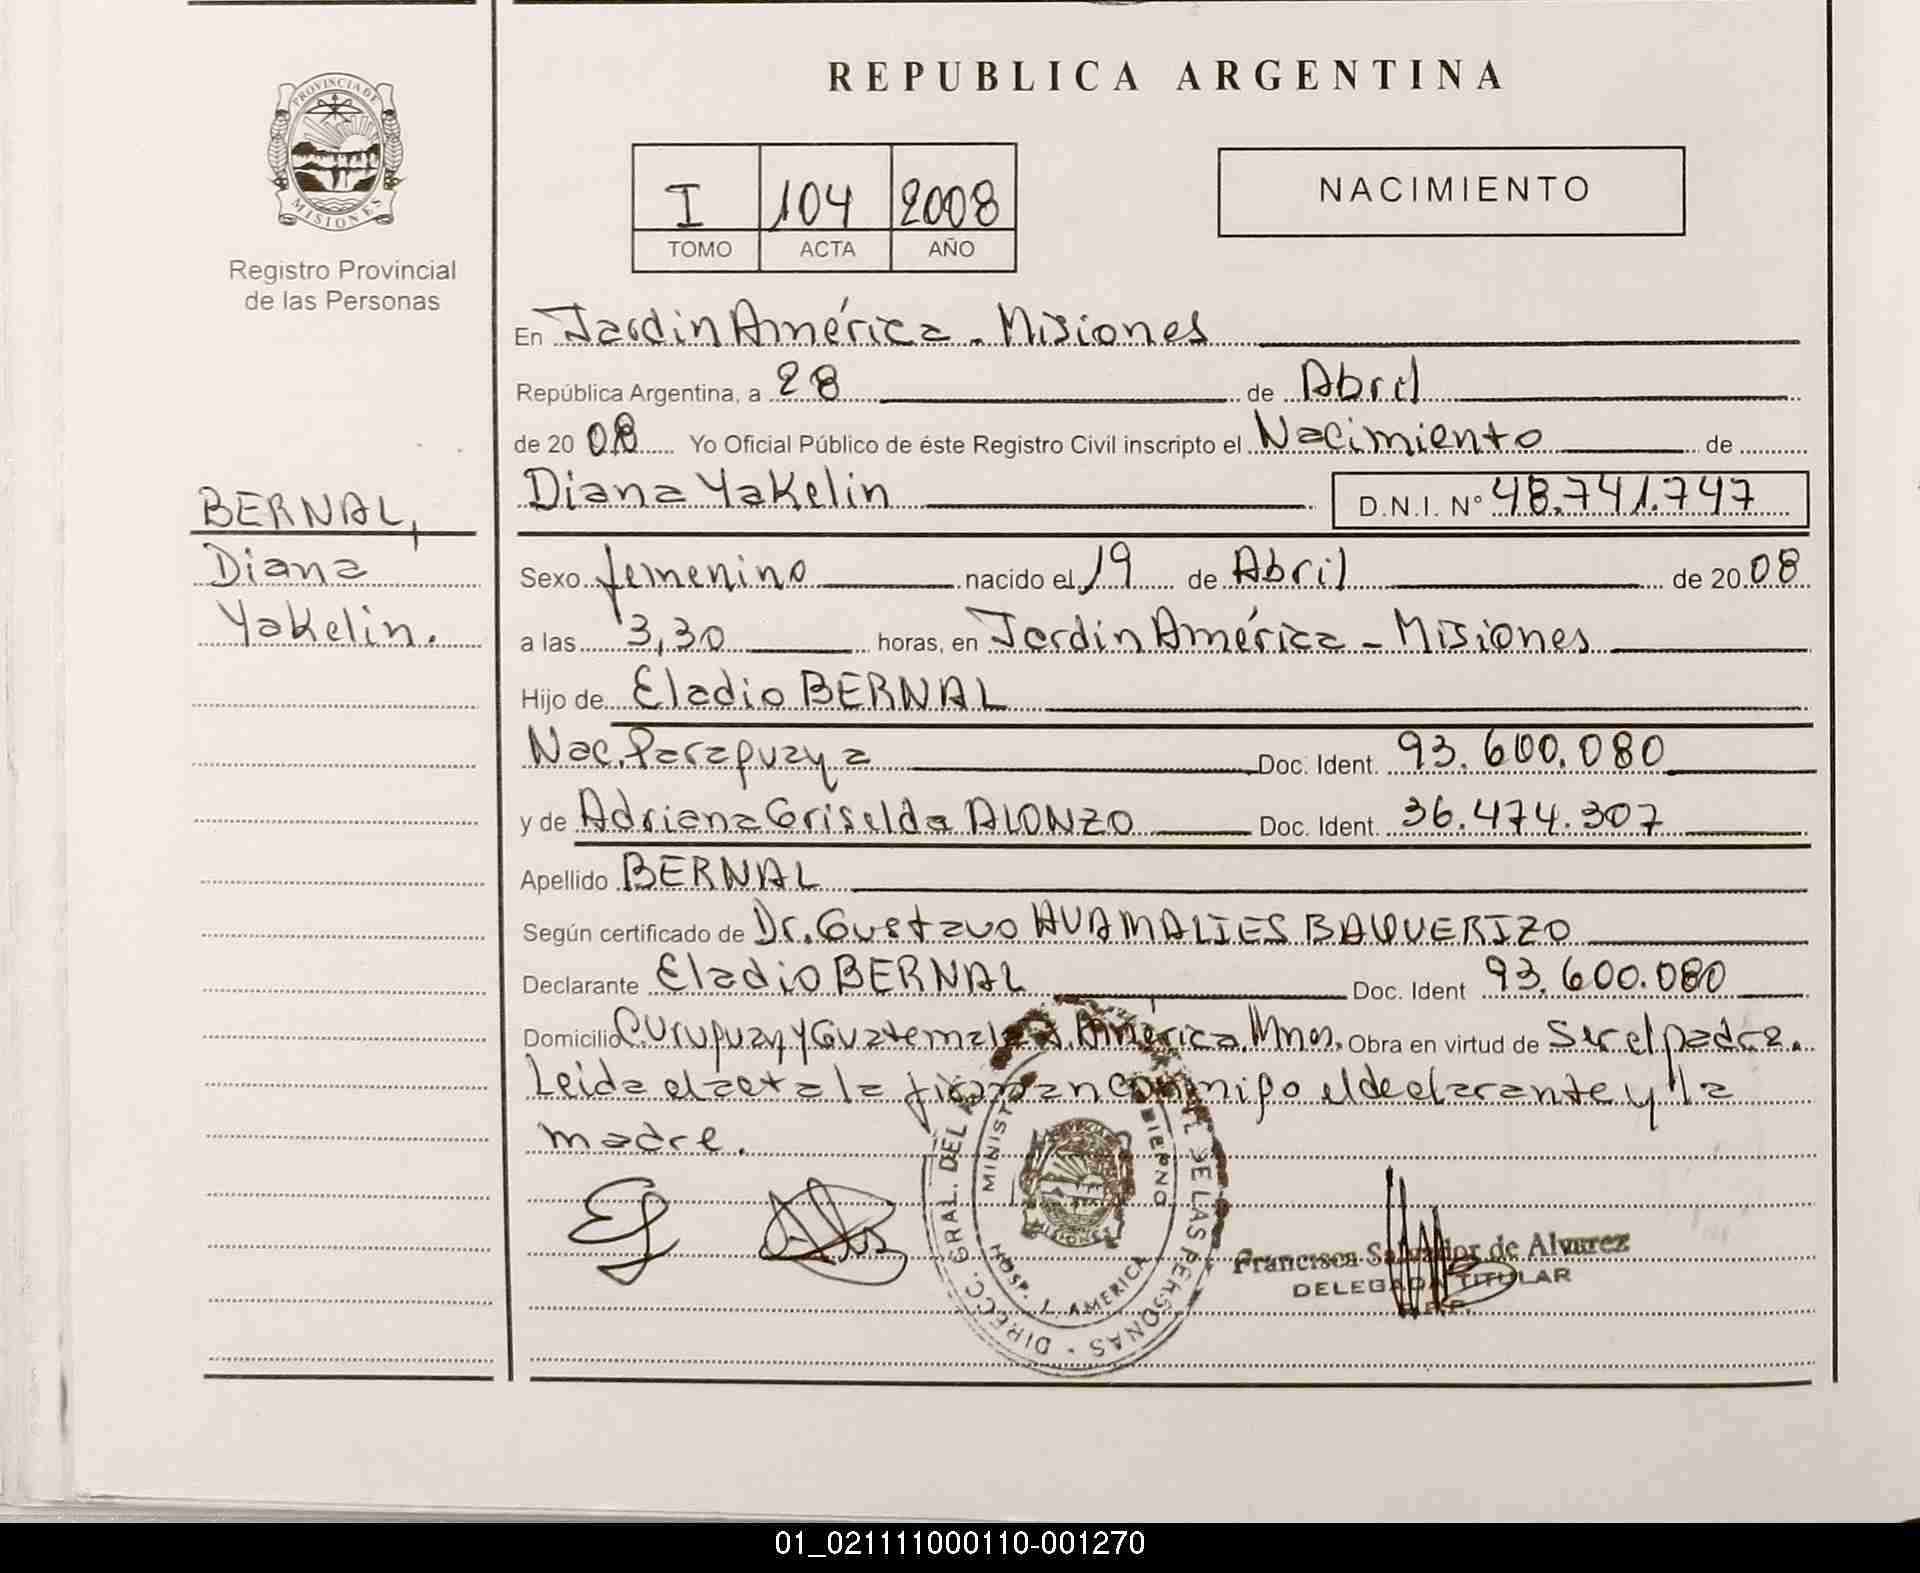 REPUBLICA ARGENTINA
PROVINCIA DE
MISIONES
Registro Provincial
de las Personas
I 104 2008
TOMO ACTA AÑO
NACIMIENTO
En Jardin América - Misiones
República Argentina, a 28 de Abril
de 2008 Yo Oficial Público de éste Registro Civil inscripto el Nacimiento de
Diana Yakelin D.N.I. N° 48.741.747
BERNAL,
Diana
Yakelin.
Sexo femenino nacido el 19 de Abril de 2008
a las 3,30 horas, en Jardin América - Misiones
Hijo de Eladio BERNAL
Nac. Paraguaya Doc. Ident. 93.600.080
y de Adriana Griselda ALONZO Doc. Ident. 36.474.307
Apellido BERNAL
Según certificado de Dr. Gustavo HUAMALIES BAQUERIZO
Declarante Eladio BERNAL Doc. Ident 93.600.080
Domicilio Curupuay y Guatemala J. América. Mnes. Obra en virtud de Ser el padre.
Leida el acta la firman conmigo el declarante y la
madre.
DIRECC. GRAL. DEL DE LAS PERSONAS
MINIST BIERNO
HOSP. J. AMERICA
MISIONES
Francisca Salvador de Alvarez
DELEGADA TITULAR
R.P.P.
01_021111000110-001270